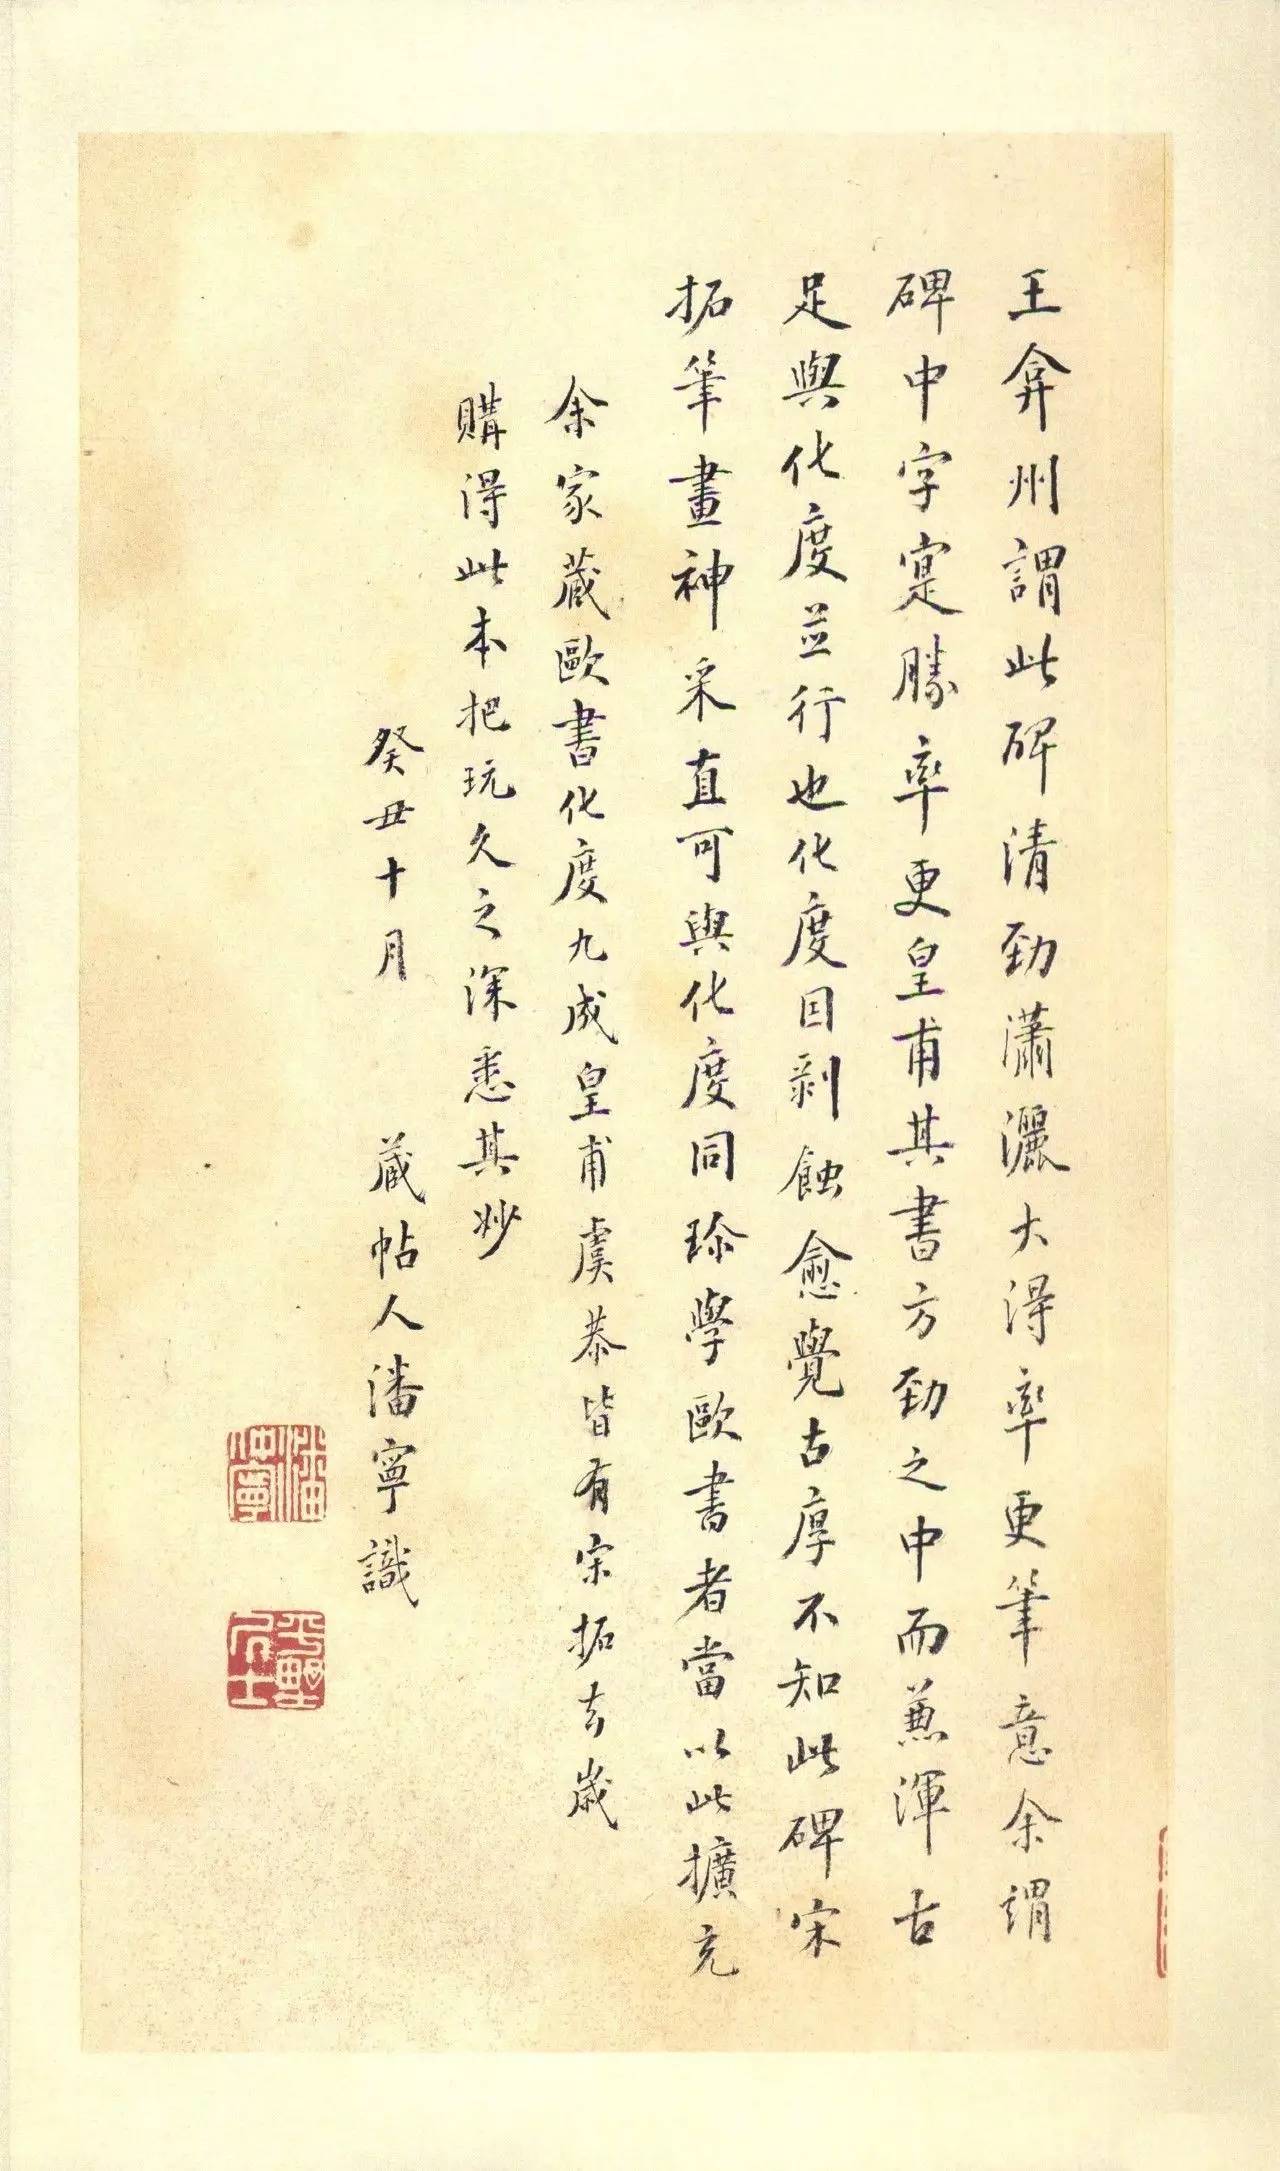 王弇州謂此碑清勁瀟灑大得率更筆意余謂
碑中字寔勝率更皇甫其書方勁之中而兼渾古
足與化度並行也化度因剥蝕愈覺古厚不知此碑宋
拓筆畫神采直可與化度同珍學歐書者當以此擴充
余家藏歐書化度九成皇甫虞恭皆有宋拓去歲
購得此本把玩久之深悉其妙
癸丑十月 藏帖人潘寧識